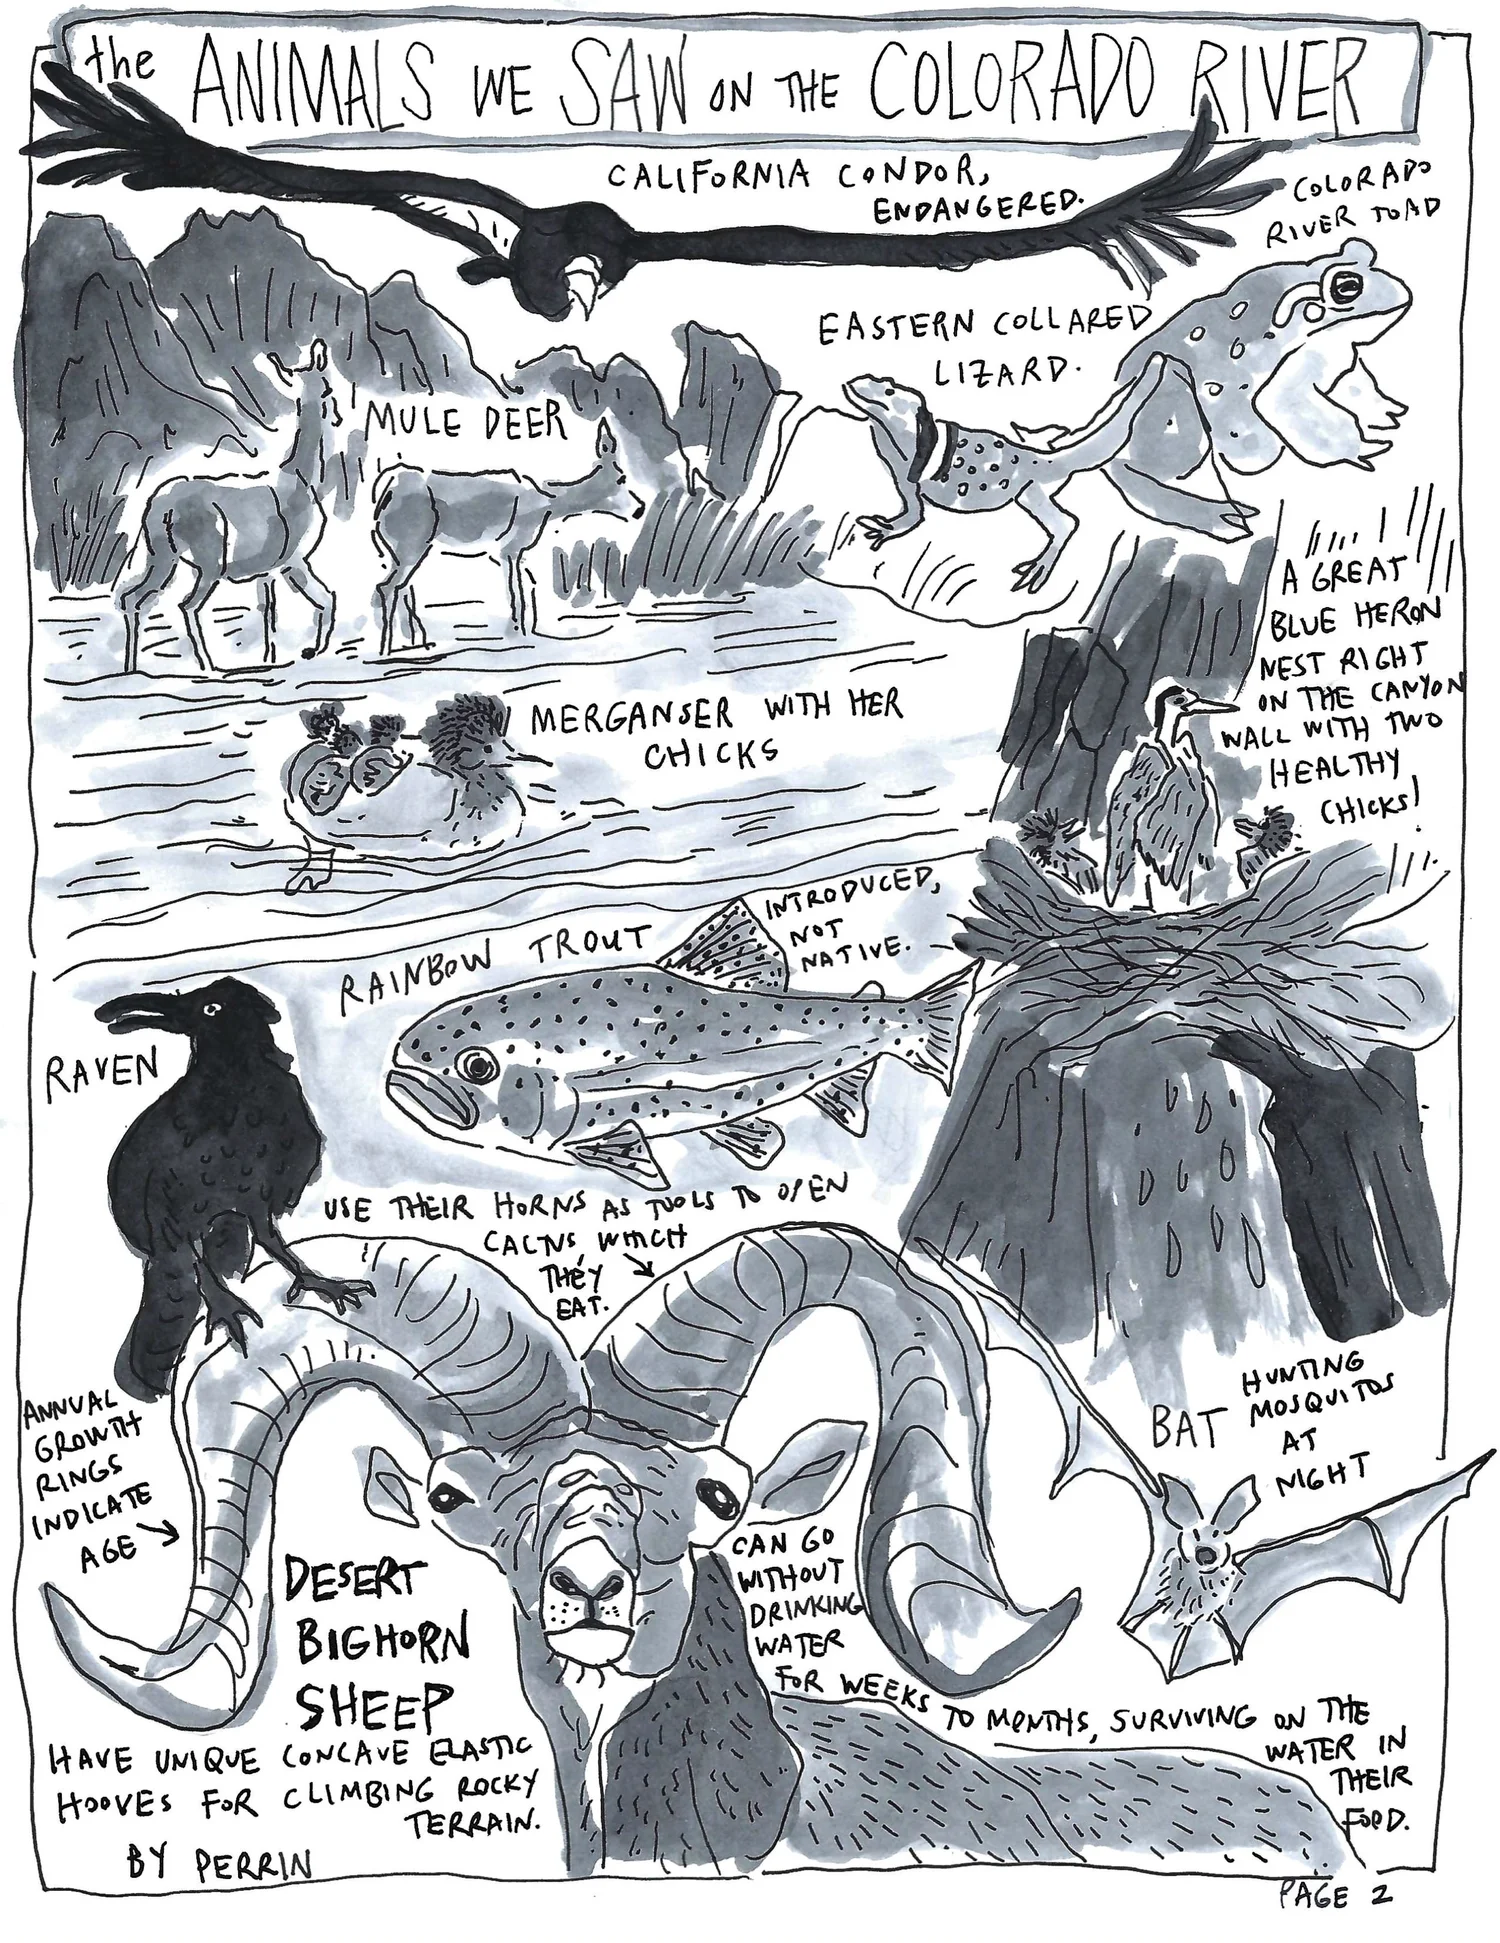 the ANIMALS WE SAW ON THE COLORADO RIVER
CALIFORNIA CONDOR,
ENDANGERED.
COLORADO
RIVER TOAD
EASTERN COLLARED
LIZARD.
MULE DEER
A GREAT
BLUE HERON
NEST RIGHT
ON THE CANYON
WALL WITH TWO
HEALTHY
CHICKS!
MERGANSER WITH HER
CHICKS
RAINBOW TROUT
INTRODUCED,
NOT
NATIVE.
RAVEN
USE THEIR HORNS AS TOOLS TO OPEN
CACTUS, WHICH
THEY
EAT.
ANNUAL
GROWTH
RINGS
INDICATE
AGE
BAT
HUNTING
MOSQUITOS
AT
NIGHT
DESERT
BIGHORN
SHEEP
HAVE UNIQUE CONCAVE ELASTIC
HOOVES FOR CLIMBING ROCKY
TERRAIN.
CAN GO
WITHOUT
DRINKING
WATER
FOR WEEKS TO MONTHS, SURVIVING ON THE
WATER IN
THEIR
FOOD.
BY PERRIN
PAGE 2